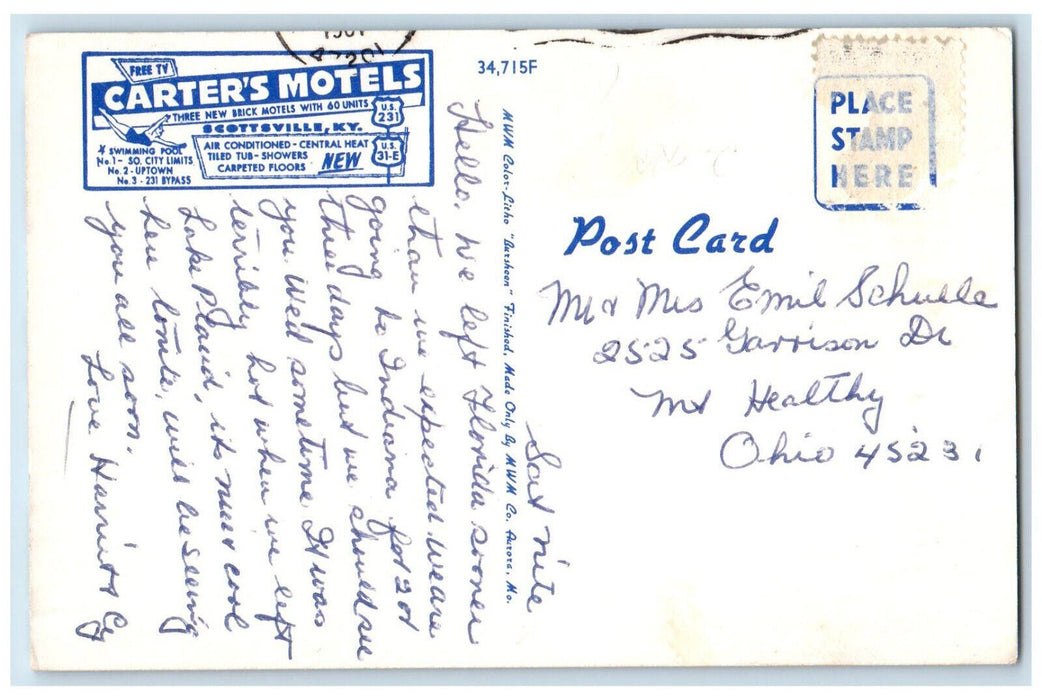 FREE TV
CARTER'S MOTELS
THREE NEW BRICK MOTELS WITH 60 UNITS
U.S. 231
SCOTTSVILLE, KY.
SWIMMING POOL
No. 1 - SO. CITY LIMITS
No. 2 - UPTOWN
No. 3 - 231 BYPASS
AIR CONDITIONED - CENTRAL HEAT
TILED TUB - SHOWERS
CARPETED FLOORS
NEW
U.S. 31-E
47201
34,715F
PLACE
STAMP
HERE
Post Card
MWM Color-Litho "Dursheen" Finished, Made Only By MWM Co. Aurora, Mo.
Sat Nite
Hello, We left Florida sooner
than we expected. We are
going to Indiana for 2 or
three days but we should see
you Wed sometime. It was
terribly hot when we left
Lake Placid, its nice & cool
here tonite, will be seeing
you all soon.
Love Harriet &
Mr & Mrs Emil Schuelle
2525 Garrison Dr
Mt Healthy
Ohio 45231